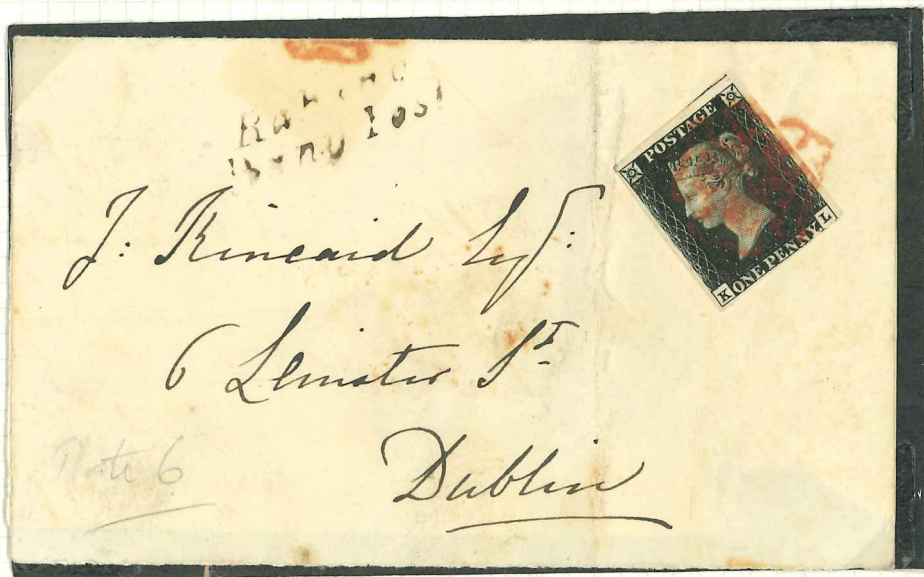 Penny Post
POSTAGE
ONE PENNY
K
L
J. Kincaid Esqr:
6 Leinster St
Dublin
Plate 6